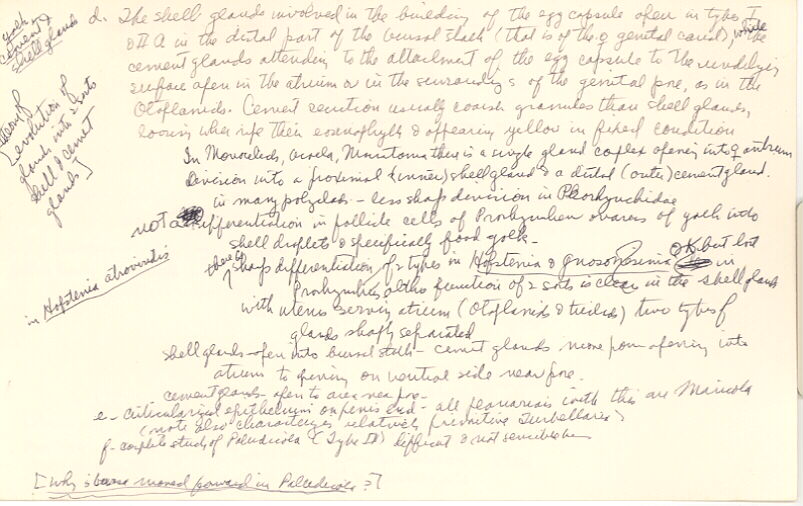 yolk
cement &
shell glands
d. The shell glands involved in the building of the egg capsule open in types I
& II A in the distal part of the bursal stalk (that is of the ♀ genital canal), while the
cement glands attending to the attachment of the egg capsule to the underlying
surface open in the atrium or in the surroundings of the genital pore, as in the
Otoplanids. Cement secretion usually coarser granules than shell glands,
when ripe their eosinophyly & appearing yellow in fixed condition
[theory of
evolution of
glands into 2 sorts
shell & cement
glands]
In Monocelids, Acoela, there is a single gland complex opening into ♀ antrum
Division into a proximal (inner) shell gland & a distal (outer) cement gland.
in many polyclads - less sharp division in
not a differentiation in follicle cells of Prorhynchus ovaries of yolk into
shell droplets & specifically food yolk -
there is sharp differentiation of 2 types in Hofstenia & Gnosonesima OK but lost in
in Hofstenia atroviridis
Prorhynchus altho function of 2 sorts is clear in the shell glands
with uterus serving atrium (Otoplanids & triclads) two types of
glands sharply separated
shell glands - open into bursal stalk - cement glands move from opening into
atrium to opening on ventral side near pore.
cement glands open to area near pore -
e - cuticularized epithelium on penis end - all planarians with this are Maricola
(note also characterizes relatively primitive Turbellaria)
f - complete study of Paludicola (Type III) difficult & not
[Why is bursa moved forward in Paludicola ?]